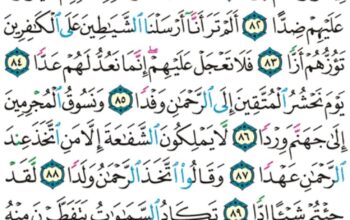 عَلَيْهِمْ ضِدًّا ٨٢ أَلَمْ تَرَ أَنَّآ أَرْسَلْنَا ٱلشَّيَٰطِينَ عَلَى ٱلْكَٰفِرِينَ
تَؤُزُّهُمْ أَزًّا ٨٣ فَلَا تَعْجَلْ عَلَيْهِمْ ۖ إِنَّمَا نَعُدُّ لَهُمْ عَدًّا ٨٤
يَوْمَ نَحْشُرُ ٱلْمُتَّقِينَ إِلَى ٱلرَّحْمَٰنِ وَفْدًا ٨٥ وَنَسُوقُ ٱلْمُجْرِمِينَ
إِلَىٰ جَهَنَّمَ وِرْدًا ٨٦ لَّا يَمْلِكُونَ ٱلشَّفَٰعَةَ إِلَّا مَنِ ٱتَّخَذَ عِندَ
ٱلرَّحْمَٰنِ عَهْدًا ٨٧ وَقَالُوا۟ ٱتَّخَذَ ٱلرَّحْمَٰنُ وَلَدًا ٨٨ لَّقَدْ
جِئْتُمْ شَيْـًٔا إِدًّا ٨٩ تَكَادُ ٱلسَّمَٰوَٰتُ يَتَفَطَّرْنَ مِنْهُ